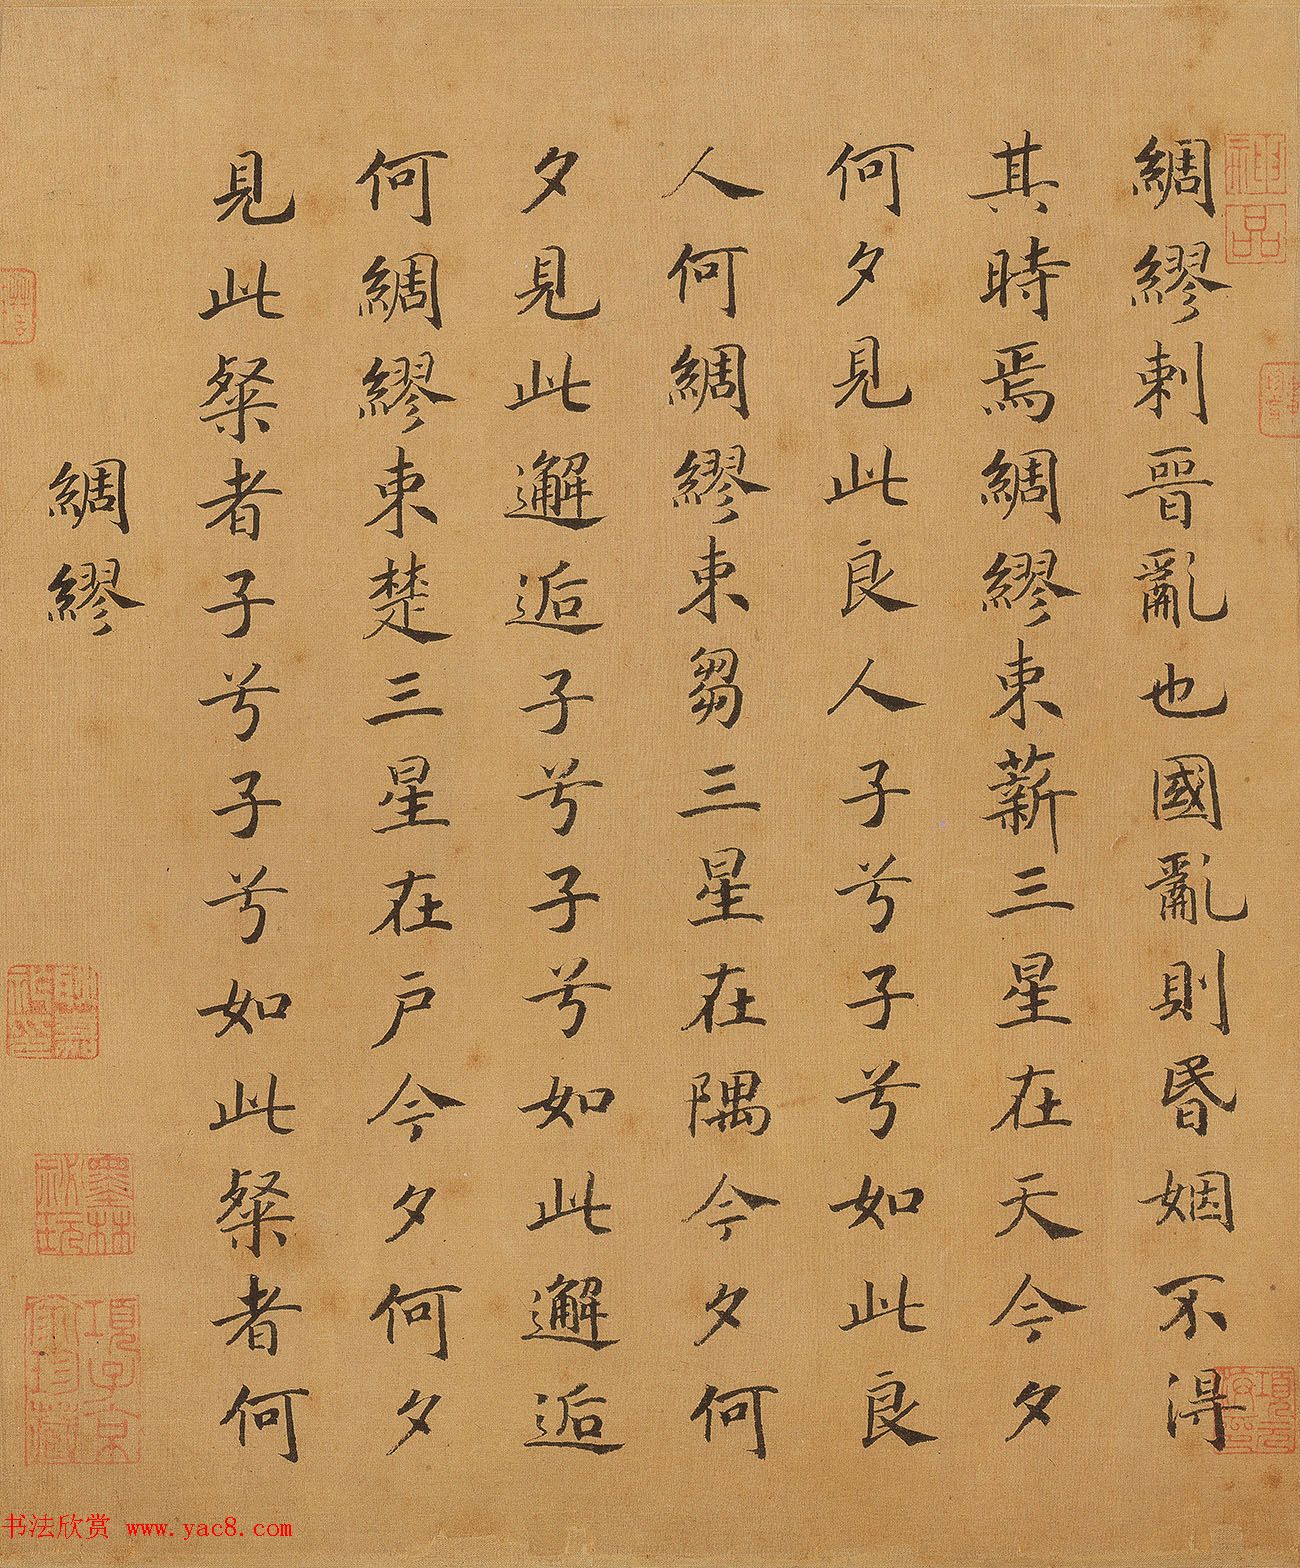 綢繆刺晉亂也國亂則昏姻不得
其時焉綢繆束薪三星在天今夕
何夕見此良人子兮子兮如此良
人何綢繆束芻三星在隅今夕何
夕見此邂逅子兮子兮如此邂逅
何綢繆束楚三星在戶今夕何夕
見此粲者子兮子兮如此粲者何
綢繆
神品
墨林祕玩
項子京家珍藏
书法欣赏 www.yac8.com